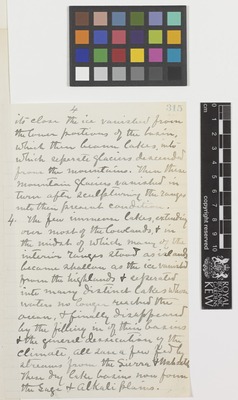 4 313
its close the ice vanished from
the lower portions of the basin,
which then became lakes, into
which separate glaciers descended
from the mountains. Then these
mountain glaciers vanished in
turn after sculpturing the ranges
into their present condition.
4. The few immense lakes, extending
over most of the lowlands, & in
the midst of which many of the
interior ranges stood as islands
became shallow as the ice vanished
from the highlands & separated
into many distinct lakes whose
waters no longer reached the
ocean, & finally disappeared
by the filling in of their basins
& the general dessication of the
climate all save a few fed by
streams from the Sierra & Wahsatch
These dry lake basins now form
the Sage & Alkali plains.
copyright reserved
KEW